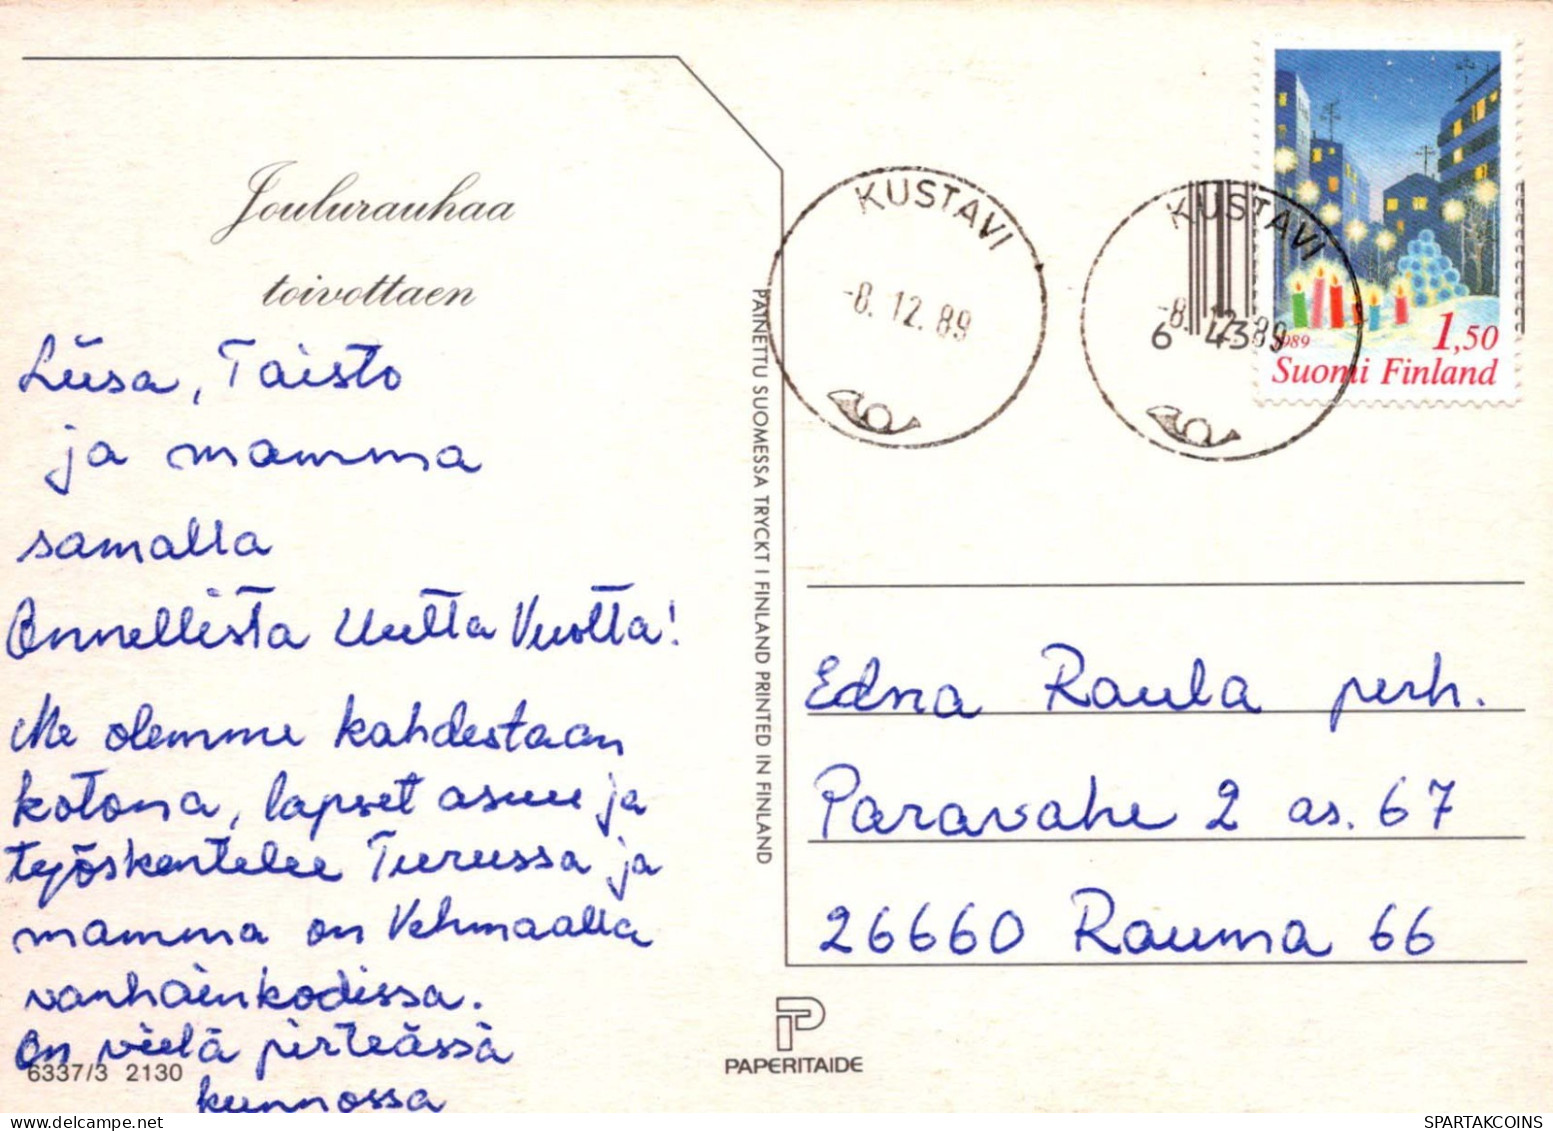 Joulurauhaa
toivottaen
Liisa, Taisto
ja mamma
samalla
Onnellista Uutta Vuotta!
Me olemme kahdestaan
kotona, lapset asuu ja
työskentelee Turussa ja
mamma on Vehmaalla
vanhainkodissa.
On vielä pirteässä
kunnossa
6337/3 2130
PAINETTU SUOMESSA TRYCKT I FINLAND PRINTED IN FINLAND
PAPERITAIDE
KUSTAVI
-8.12.89
KUSTAVI
-8.12.89
6 43
1989
1,50
Suomi Finland
Edna Raula perh.
Paravahe 2 as. 67
26660 Rauma 66
SPARTAKCOINS